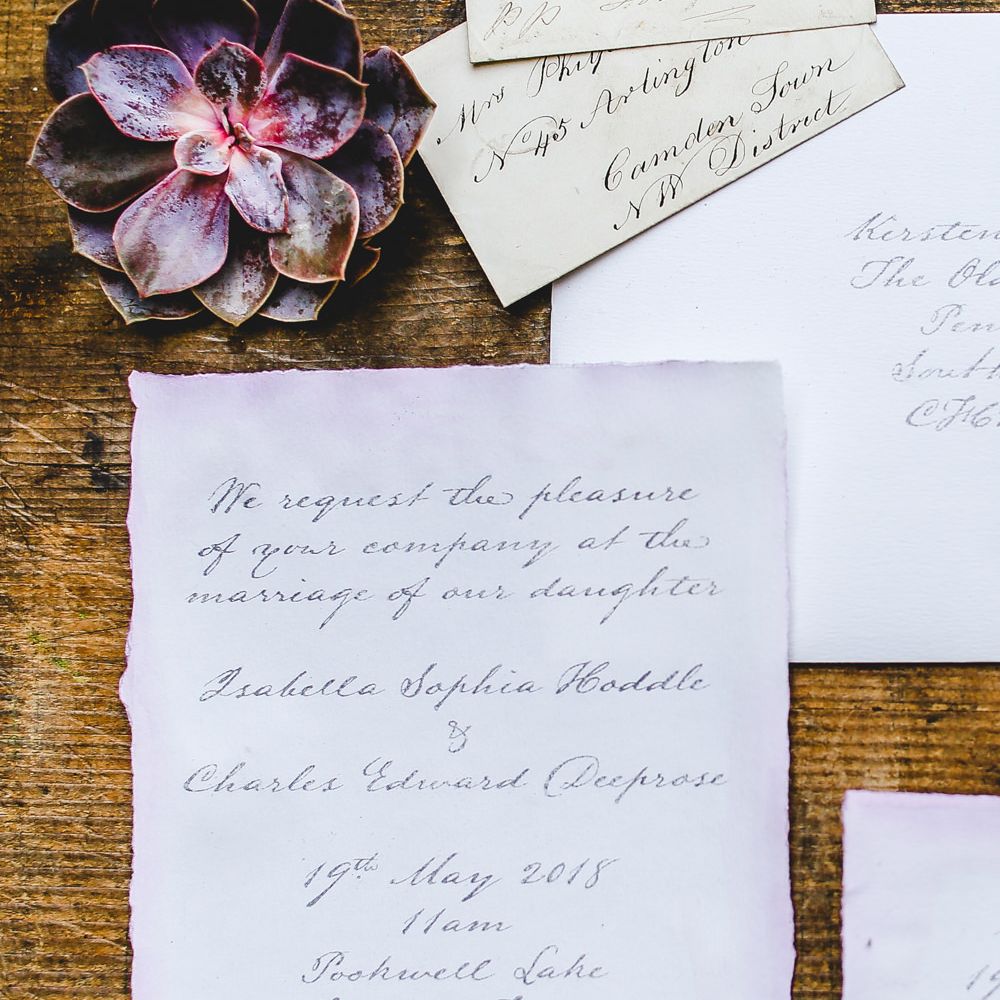 Mrs
No 45 Arlington
Camden Town
NW District
Kersten
The Old
We request the pleasure
of your company at the
marriage of our daughter
Isabella Sophia Hoddle
&
Charles Edward Deeprose
19th May 2018
11am
Pookwell Lake